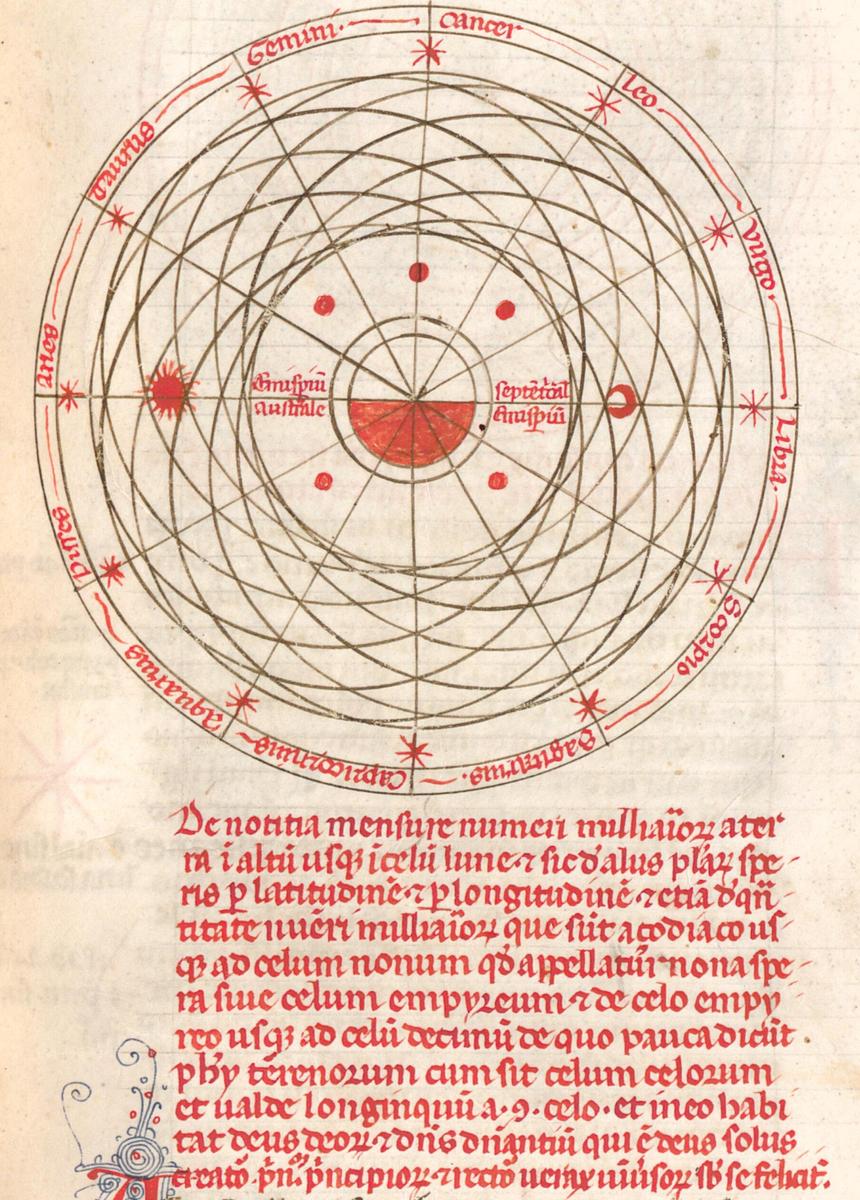 Cancer
Leo
Virgo
Libra
Scorpio
Sagittarius
Capricornus
Aquarius
Pisces
Aries
Taurus
Gemini
Emispiū
australe
septētōal
Emispiū
De notitia mensure numeri milliaioꝝ a ter
ra ī altū usqꝫ ī celū lune ⁊ sic d' alus plāꝝ spe
ris ꝑ latitudinē ⁊ ꝑ longitudinē ⁊ etiā d' qñ
titate nūeri milliaioꝝ que sūt a çodiaco us
qꝫ ad celum nonum qd' appellatur nona spe
ra siue celum empyreum ⁊ de celo empy
reo usqꝫ ad celū decimū de quo pauca dicūt
phy terrenorum cum sit celum celorum
et ualde longinquū a .9. celo. et in eo habi
tat deus deoꝝ ⁊ dn̄s dn̄antiū qui ē deus solus
creato pn̄. pncipioꝝ ⁊ recto uerax uniūsoꝝ sb' se